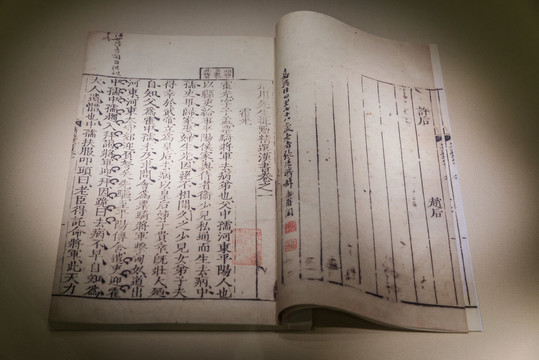 許后
趙后
荊川先生批點精選漢書卷之一
霍光
霍光字子孟票騎將軍去病弟也父中孺河東平陽人也
以縣吏給事平陽侯家與侍者衛少兒私通而生去病中
孺吏畢歸家娶婦生光因絕不相聞久之少兒女弟子夫
得幸於武帝立為皇后去病以皇后姊子貴幸既壯大乃
自知父為霍中孺未及求問會為票騎將軍擊匈奴道出
河東河東太守郊迎負弩矢先驅至平陽傳舍遣吏迎霍
中孺中孺趨入拜謁將軍迎拜因跪曰去病不早自知為
大人遺體也中孺扶服叩頭曰老臣得託命將軍此天力